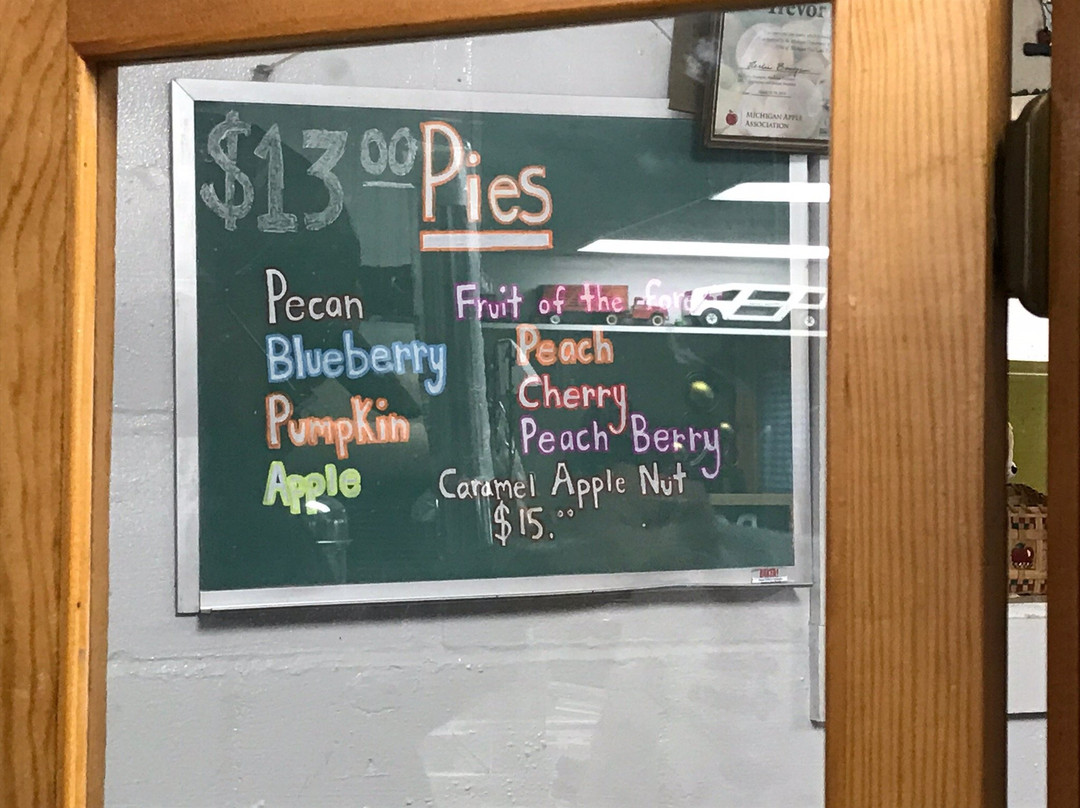 $13.00 Pies
Pecan
Blueberry
Pumpkin
Apple
Fruit of the forest
Peach
Cherry
Peach Berry
Caramel Apple Nut
$15.00
Trevor
MICHIGAN APPLE
ASSOCIATION